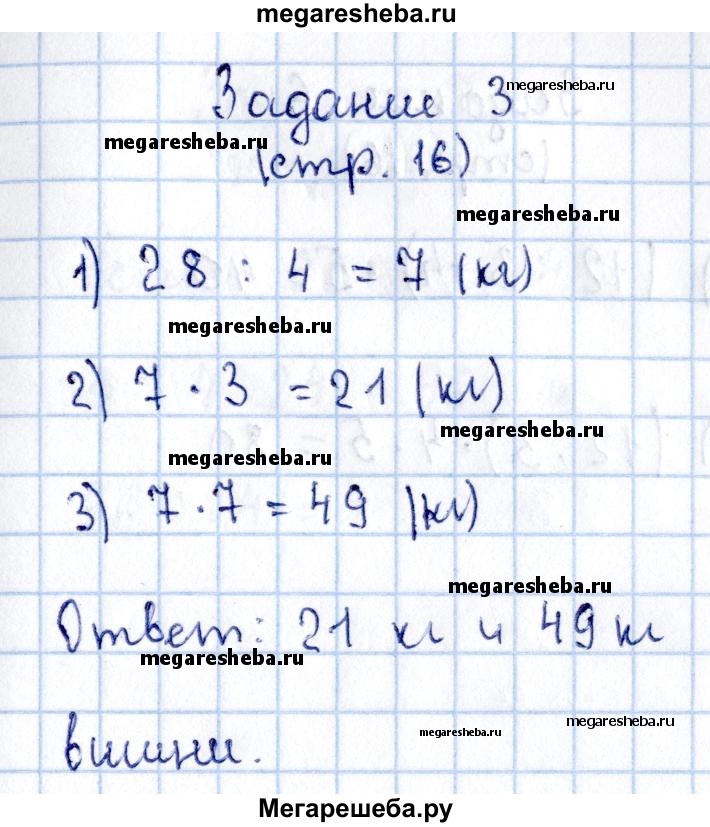 megaresheba.ru
Задание 3
megaresheba.ru
megaresheba.ru
(стр. 16)
megaresheba.ru
1) 28 : 4 = 7 (кг)
megaresheba.ru
2) 7 · 3 = 21 (кг)
megaresheba.ru
megaresheba.ru
3) 7 · 7 = 49 (кг)
megaresheba.ru
Ответ: 21 кг и 49 кг
megaresheba.ru
megaresheba.ru
megaresheba.ru
вишни.
Мегарешеба.ру